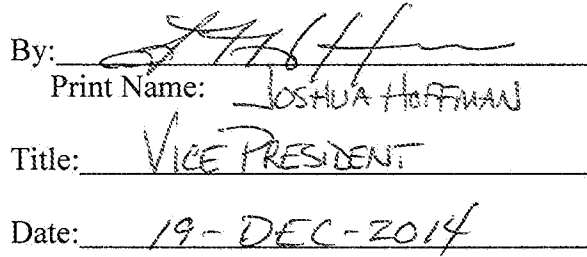 By:
Print Name: JOSHUA HOFFMAN
Title: VICE PRESIDENT
Date: 19-DEC-2014